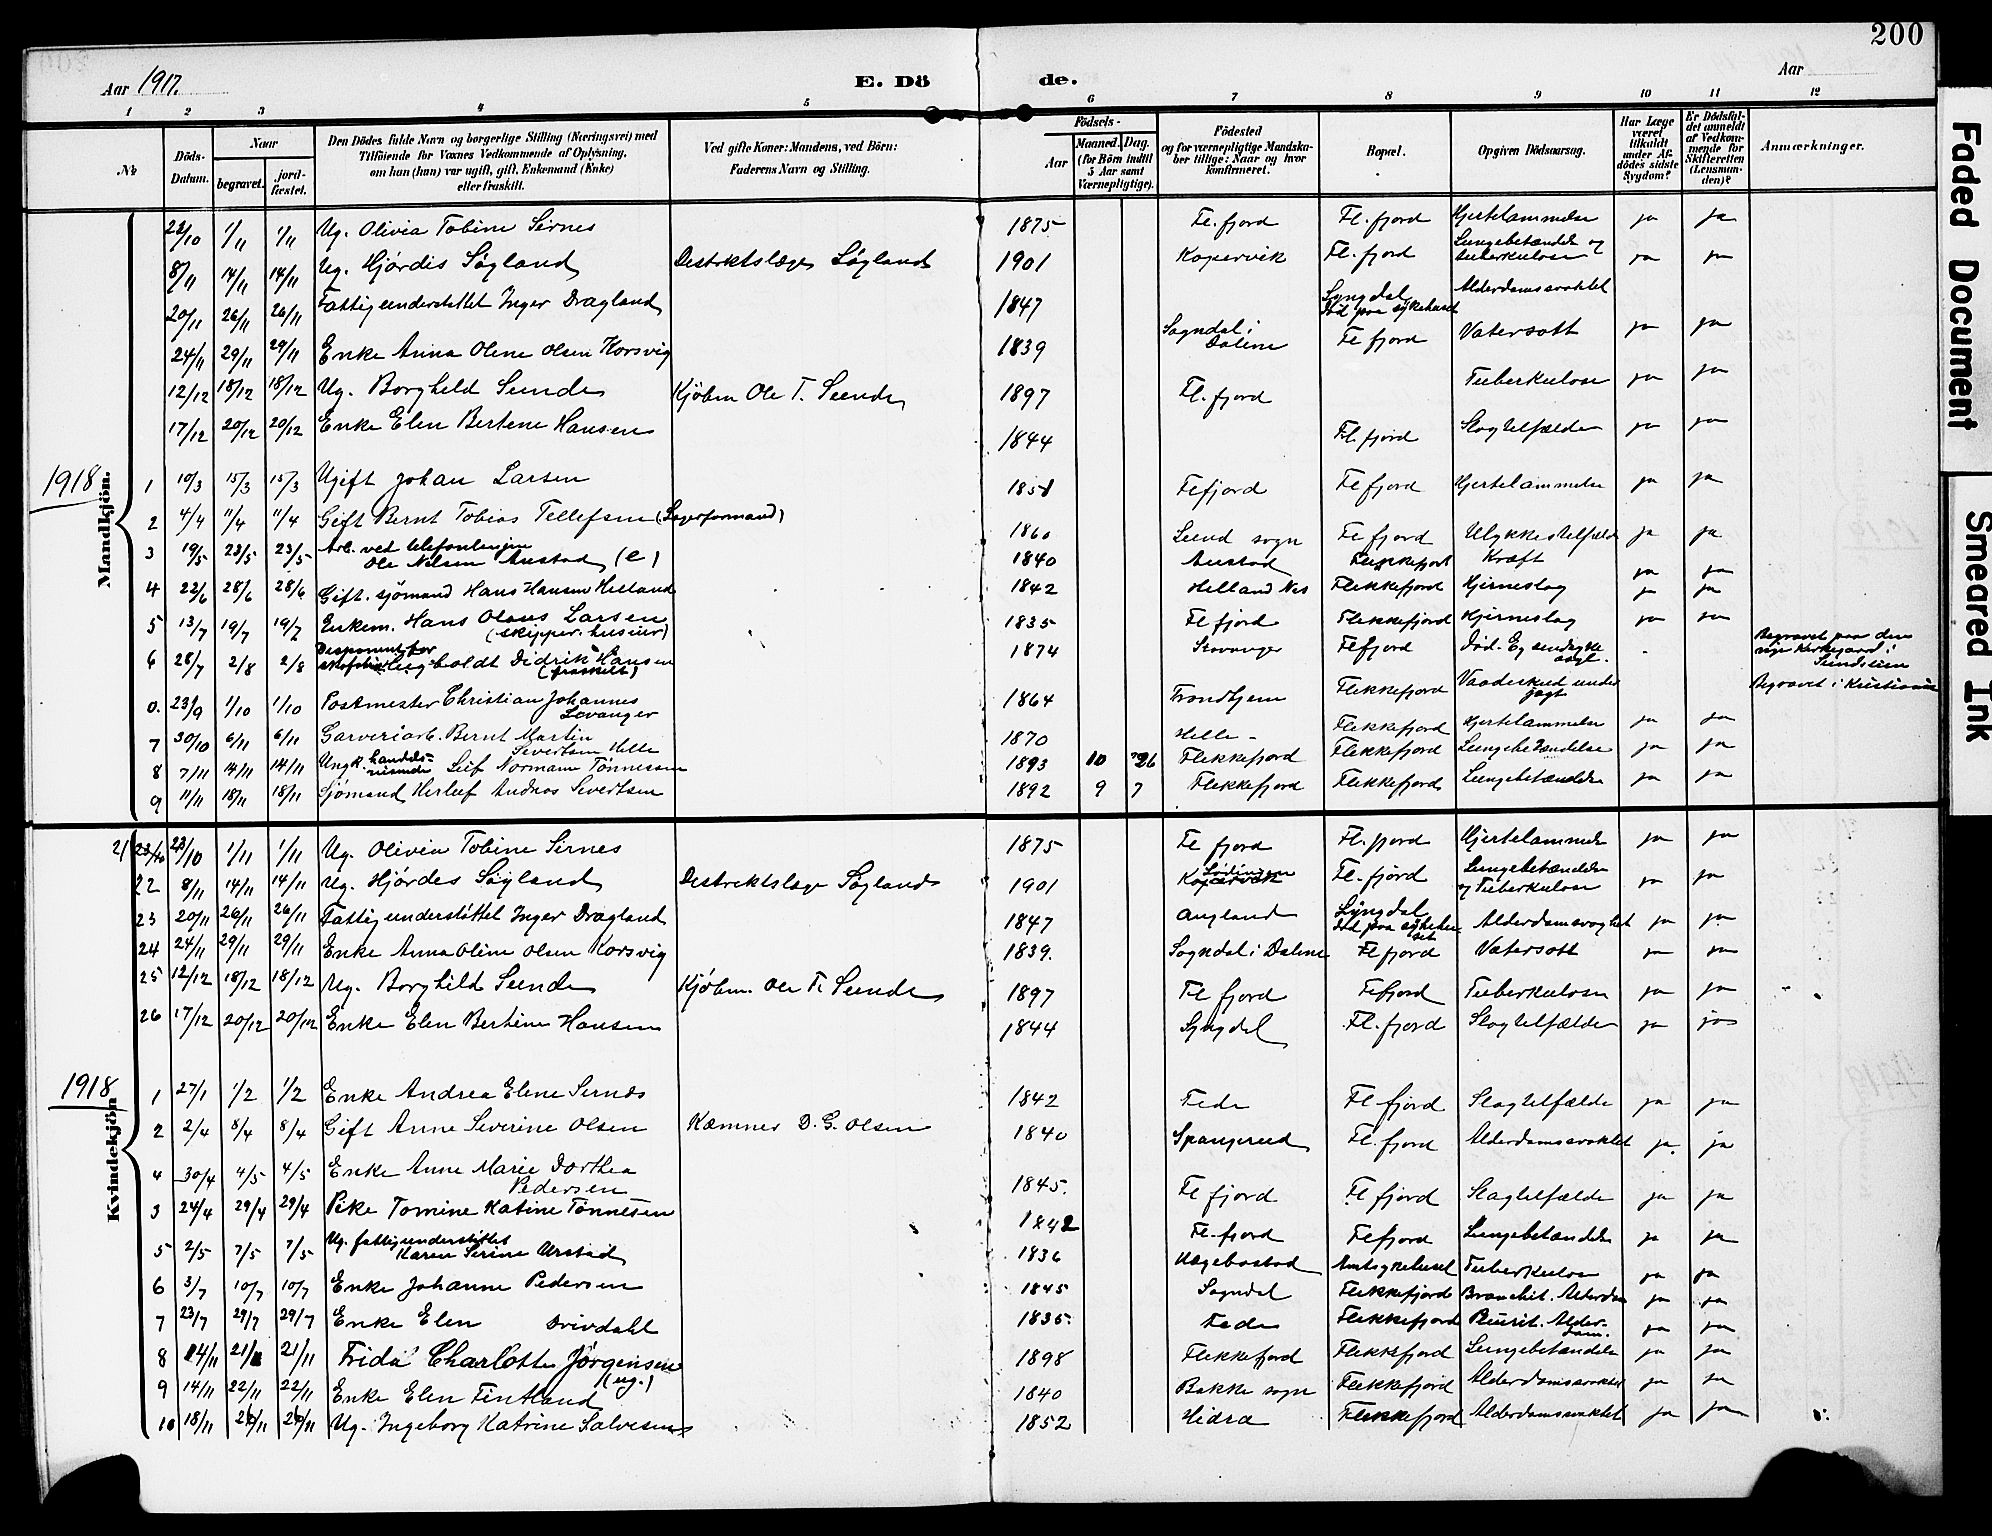 200
Aar 1917.
E. Dö de.
Aar
1 2 3 4 5 6 7 8 9 10 11 12
№
Döds-Datum.
Naar begravet. jordfæstet.
Den Dödes fulde Navn og borgerlige Stilling (Næringsvei) med Tilföiende for Voxnes Vedkommende af Oplysning, om han (hun) var ugift, gift, Enkemand (Enke) eller fraskilt.
Ved gifte Koner: Mandens, ved Börn: Faderens Navn og Stilling.
Födsels-
Aar Maaned. Dag. (for Börn indtil 5 Aar samt Værnepligtige).
Födested og for værnepligtige Mandskaber tillige: Naar og hvor konfirmeret.
Bopæl.
Opgiven Dödsaarsag.
Har Læge været tilkaldt under Afdödes sidste Sygdom?
Er Dödsfaldet anmeldt af Vedkommende for Skifteretten (Lensmanden)?
Anmærkninger.
Faded Document
Smeared Ink
Mandkjön.
22/10 1/11 1/11 Ug. Olivia Tobine Sirnes 1875 Fl. fjord Fl. fjord Hjertelammelse ja ja
8/11 14/11 14/11 Ug. Hjørdis Søyland Distriktslæge Søyland 1901 Kopervik Fl. fjord Lungebetændelse og tuberkulose ja ja
20/11 26/11 26/11 Fattigunderstøttet Inger Dragland 1847 Lyngdal død paa sykehuset Alderdomssvakhet
24/11 29/11 29/11 Enke Anna Oline Olsen Korsvig 1839 Sogndal i Dalene Flfjord Vatersott ja ja
12/12 18/12 18/12 Ug. Borghild Sunde Kjøbm Ole T. Sunde 1897 Fl. fjord Tuberkulose ja ja
17/12 20/12 20/12 Enke Elen Bertine Hansen 1844 Fl fjord Slagtilfælde ja ja
1918
1 10/3 15/3 15/3 Ugift Johan Larsen 1851 Flfjord Flfjord Hjertelammelse ja ja
2 4/4 11/4 11/4 Gift Bernt Tobias Tellefsen (Lagerformand) 1860 Lund sogn Flfjord Ulykkestilfælde ja ja
3 19/5 23/5 23/5 Arb. ved telefonlinjen Ole Nilsen Austad (e) 1840 Austad Flekkefjord Kræft ja ja
4 22/6 28/6 28/6 Gift. sjømand Hans Hansen Helland 1842 Helland Nes Flekkefjord Hjerneslag ja ja
5 13/7 19/7 19/7 Enkem. Hans Olaus Larsen (skipper. huseier) 1835 Flfjord Flekkefjord Hjerneslag ja ja
6 28/7 2/8 2/8 Disponent for Ludvig Didrik Hansen (fraskilt) 1874 Stavanger Flfjord Død. Begravet paa den nye Kirkegaard i
0. 23/9 1/10 1/10 Postmester Christian Johannes Levanger 1864 Trondhjem Flekkefjord Vaadeskud under jagt Begravet i Kristiania
7 30/10 6/11 6/11 Garveriarb. Bernt Martin Sivertsen Helle 1870 Helle - Flekkefjord Hjertelammelse ja ja
8 7/11 14/11 14/11 Ungk. handelsreisende Leif Normann Tønnessen 1893 10 26 Flekkefjord Flekkefjord Lungebetændelse ja ja
9 11/11 18/11 18/11 Sjømand Herleif Andreas Sivertsen 1892 9 7 Flekkefjord Flekkefjord Lungebetændelse ja ja
Kvindekjön
21 23/10 1/11 1/11 Ug. Olivia Tobine Sirnes 1875 Fl fjord Fl. fjord Hjertelammelse ja ja
22 8/11 14/11 14/11 Ug. Hjørdes Søyland Distriktslæge Søyland 1901 Kopervik Lødingen Fl. fjord Lungebetændelse og Tuberkulose ja ja
23 20/11 26/11 26/11 Fattigunderstøttet Inger Dragland 1847 Augland Lyngdal død paa sykehuset Alderdomssvaghet ja ja
24 24/11 29/11 29/11 Enke Anna Oline Olsen Korsvig 1839. Sogndal i Dalene Flfjord Vatersott ja ja
25 12/12 18/12 18/12 Ug. Borghild Sunde Kjøbm. Ole T. Sunde 1897 Fl fjord Flfjord Tuberkulose ja ja
26 17/12 20/12 20/12 Enke Elen Bertine Hansen 1844 Lyngdal Fl. fjord Slagtilfælde ja ja
1918
1 27/1 1/2 1/2 Enke Andrea Elene Sirnes 1842 Fede Fl fjord Slagtilfælde ja ja
2 2/4 8/4 8/4 Gift Anne Severine Olsen Kæmner D. G. Olsen 1840 Spangereid Fl. fjord Alderdomssvakhet ja. ja
4 30/4 4/5 4/5 Enke Anne Marie Dorthea Pedersen 1845. Fl fjord Fl fjord Slagtilfælde ja ja
3 24/4 29/4 29/4 Pike Tomine Katine Tønnesen 1842 Fl. fjord Flfjord Lungebetændelse ja ja
5 2/5 7/5 7/5 Ug. fattigunderstøttet Karen Serine Urstad 1836 Hægebostad Amtsykehuset Tuberkulose ja ja
6 3/7 10/7 10/7 Enke Johanne Pedersen 1845 Sogndal Flekkefjord Bronchit. Alderdom ja ja
7 23/7 29/7 29/7 Enke Elen Drivdahl 1835. Feda Flekkefjord Pleurit. Alderdom. ja ja
8 14/11 21/11 21/11 Frida Charlotte Jørgensen (ug.) 1898 Flekkefjord Flekkefjord Lungebetændelse ja ja
9 14/11 22/11 22/11 Enke Elen Fintland 1840 Bakke sogn Flekkefjord Alderdomssvakhet ja ja
10 18/11 26/11 26/11 Ug. Ingeborg Katrine Salvesen 1852 Hidra Flekkefjord Alderdomssvakhet ja ja